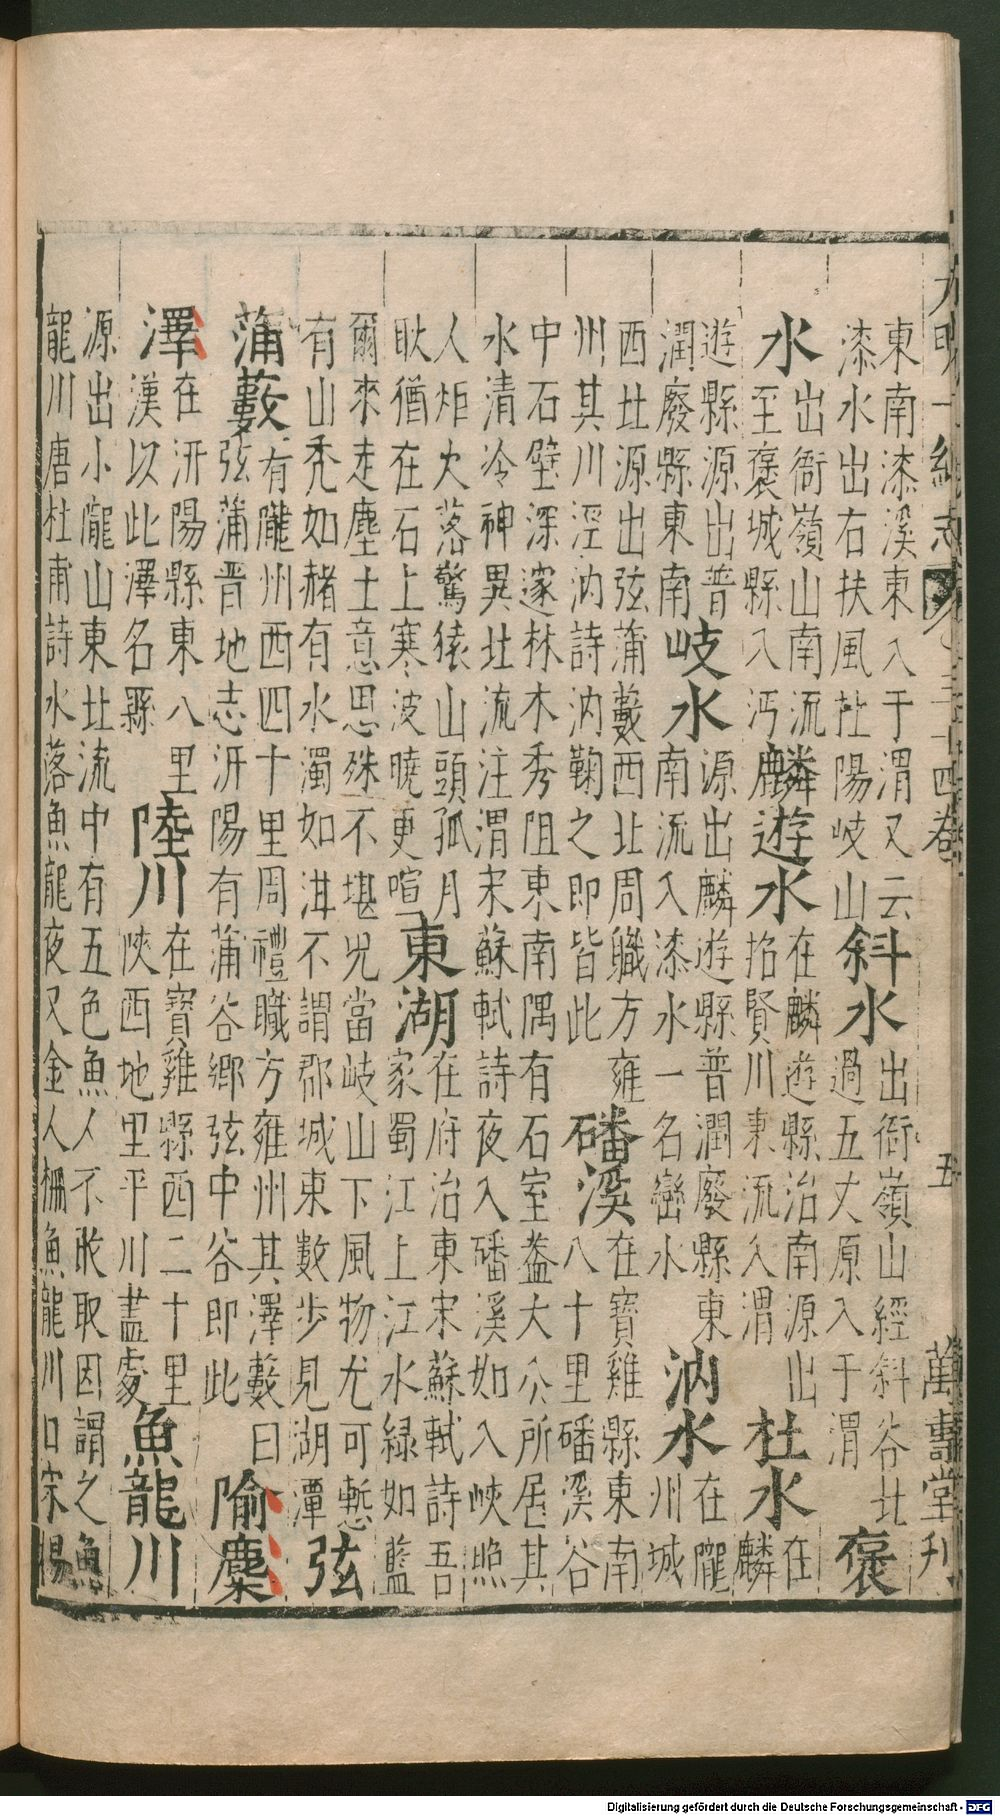 大明一統志 三十四卷 五 萬壽堂刊
東南漆溪東入于渭又云
漆水出右扶風杜陽岐山
斜水
出衙嶺山經斜谷北
過五丈原入于渭
褒
水
出衙嶺山南流
至褒城縣入沔
麟遊水
在麟遊縣治南源出
招賢川東流入渭
杜水
在
麟
遊縣源出普
潤廢縣東南
岐水
源出麟遊縣普潤廢縣東
南流入漆水一名巒水
汭水
在隴
州城
西北源出弦蒲藪西北周職方雍
州其川涇汭詩汭鞫之即皆此
磻溪
在寶雞縣東南
八十里磻溪谷
中石壁深邃林木秀阻東南隅有石室蓋太公所居其
水清泠神異北流注渭宋蘇軾詩夜入磻溪如入峽照
人炬火落驚猿山頭孤月
耿猶在石上寒波曉更喧
東湖
在府治東宋蘇軾詩吾
家蜀江上江水綠如藍
爾來走塵土意思殊不堪况當岐山下風物尤可慙
有山禿如赭有水濁如泔不謂郡城東數步見湖潭
弦
蒲藪
有隴州西四十里周禮職方雍州其澤藪曰
弦蒲晉地志汧陽有蒲谷鄉弦中谷即此
隃麋
澤
在汧陽縣東八里
漢以此澤名縣
陸川
在寶雞縣西二十里
陝西地里平川盡處
魚龍川
源出小隴山東北流中有五色魚人不敢取因謂之魚
龍川唐杜甫詩水落魚龍夜又金人柵魚龍川口宋楊
Digitalisierung gefördert durch die Deutsche Forschungsgemeinschaft - DFG